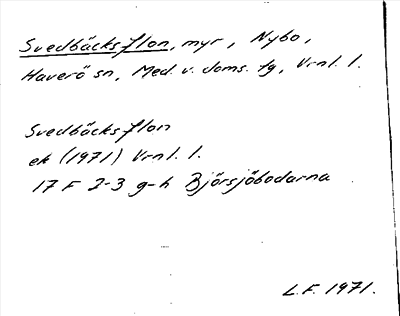 Svedbäcksflon, myr, Nybo,
Haverö sn, Med. v. doms. tg, Vrnl. l.
Svedbäcksflon
ek (1971) Vrnl. l.
17 F 2-3 g-h Björsjöbodarna
L.F. 1971.